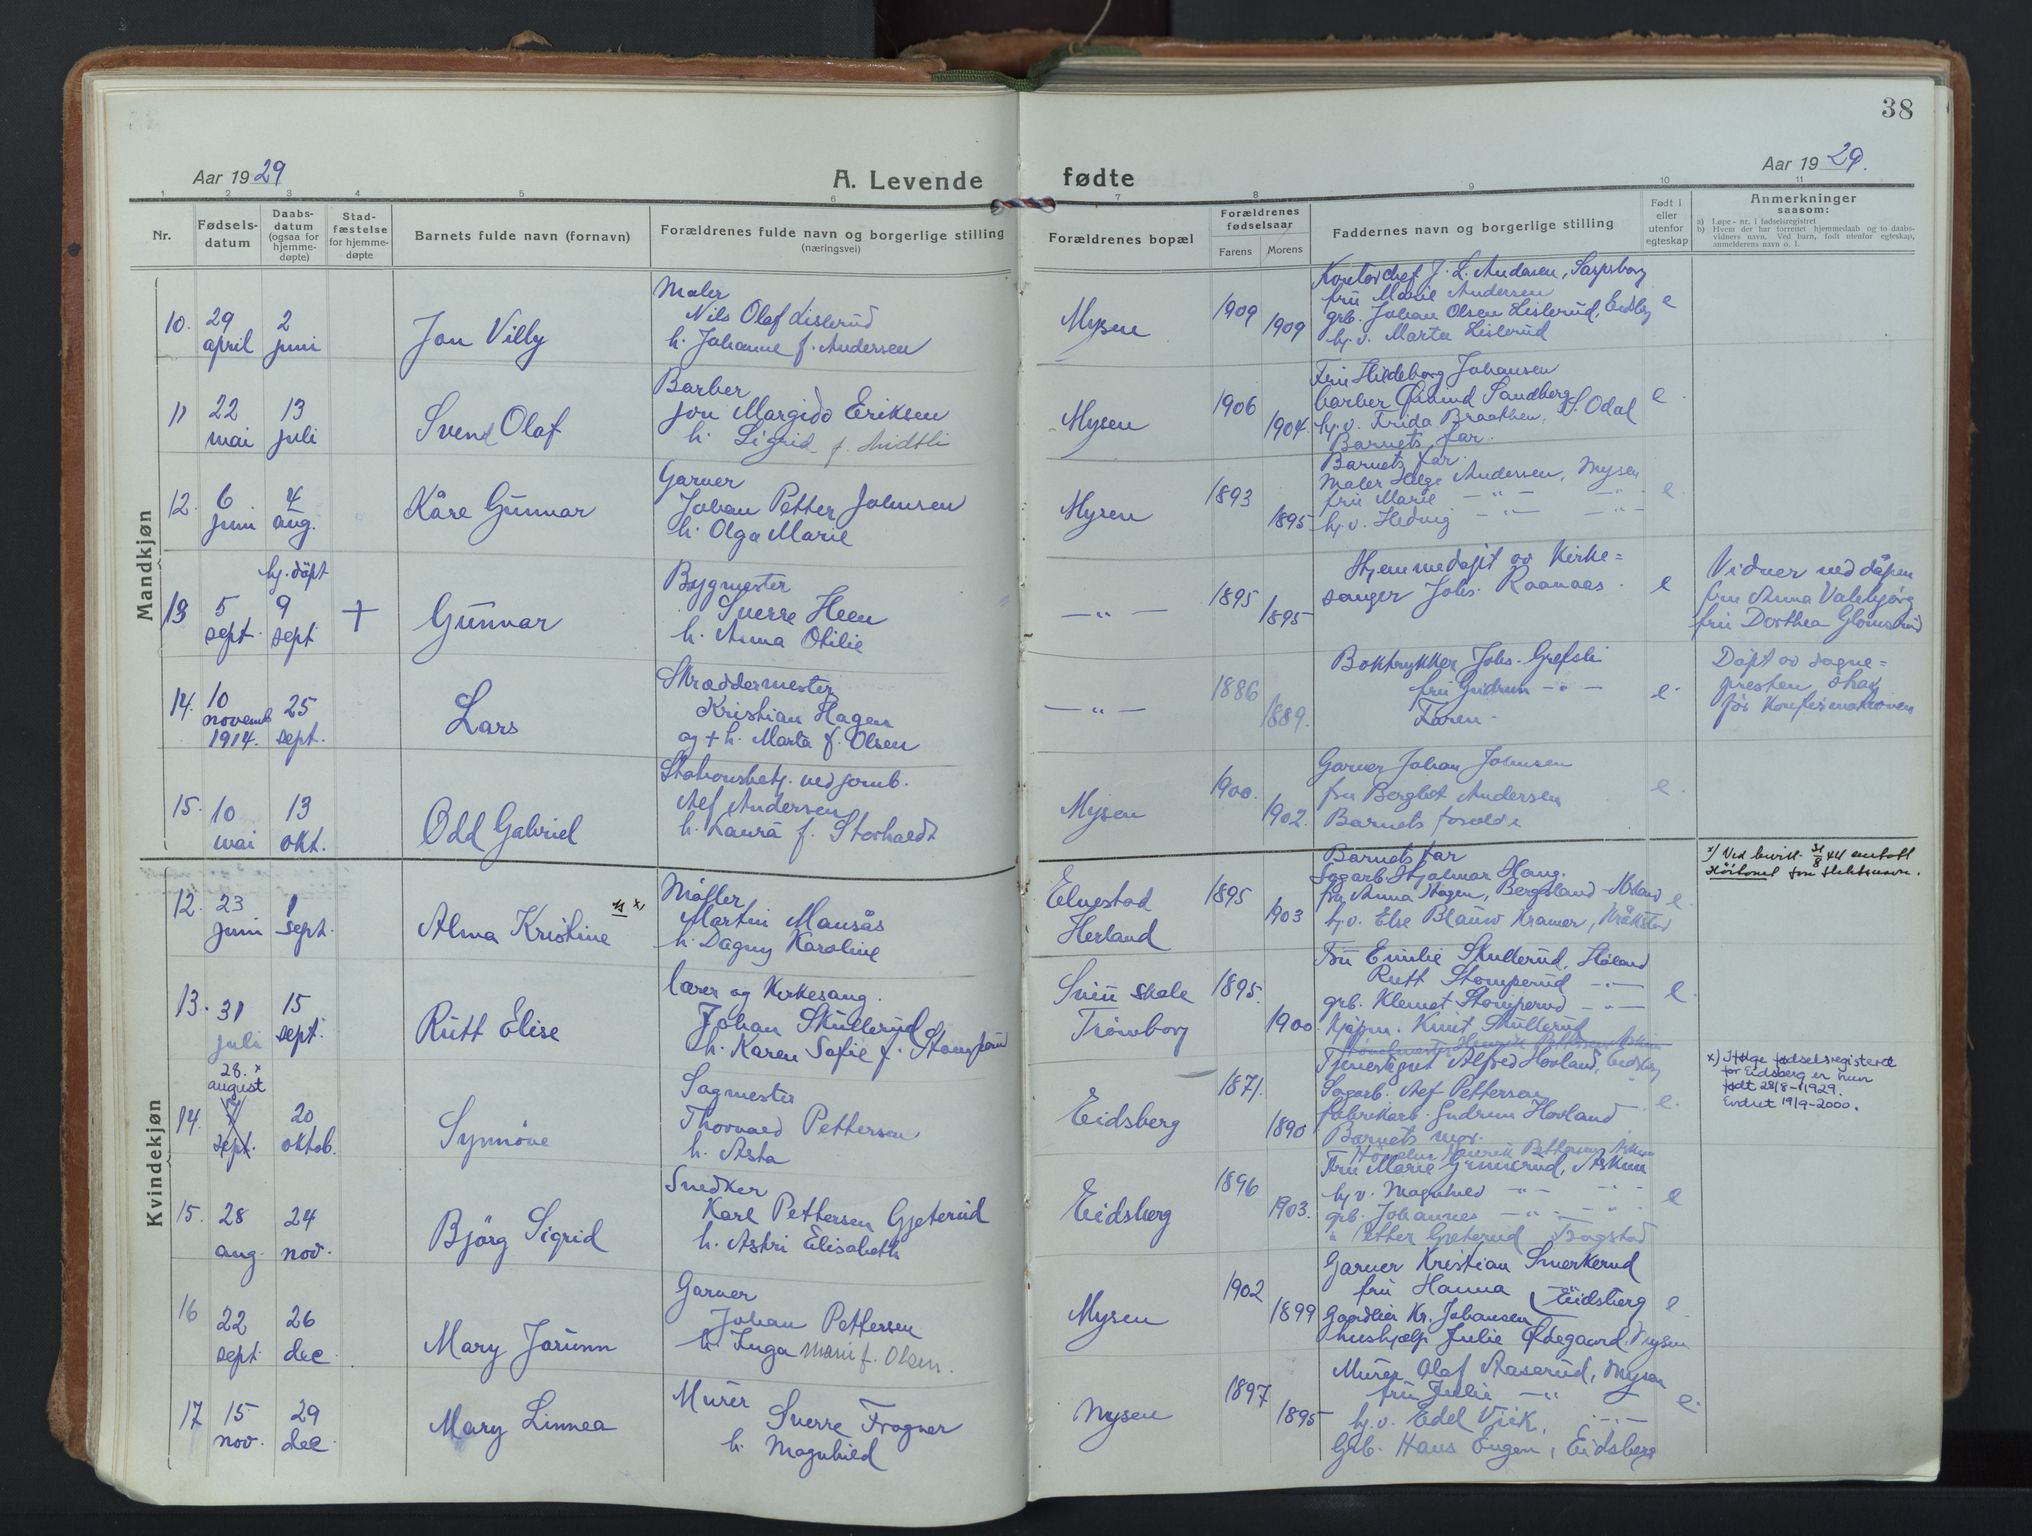 38
Aar 1929
A. Levende
fødte
Aar 1929.
1 2 3 4 5 6 7 8 9 10 11
Nr.
Fødsels-
datum
Daabs-
datum
(ogsaa for
hjemme-
døpte)
Stad-
fæstelse
for hjemme-
døpte
Barnets fulde navn (fornavn)
Forældrenes fulde navn og borgerlige stilling
(næringsvei)
Forældrenes bopæl
Forældrenes
fødselsaar
Farens
Morens
Faddernes navn og borgerlige stilling
Født i
eller
utenfor
egteskap
Anmerkninger
saasom:
a) Løpe-nr. i fødselsregistret
b) Hvem der har forrettet hjemmedaab og to daabs-
vidners navn. Ved barn, født utenfor egteskap,
anmelderens navn o. l.
Mandkjøn
10. 29 april
2 juni
Jon Villy
Maler
Nils Olaf Lislerud
h. Johanne f. Andersen
Mysen
1909
1909
Kontorchef J. L. Andersen, Sarpsborg
fru Marie Andersen
grb. Johan Olsen Lislerud, Eidsbg
hj. v. Marta Lislerud
e
11 22 mai
13 juli
Svend Olaf
Barber
Jon Margido Eriksen
h. Sigrid f.
Mysen
1906
1904.
Fru Hildeborg Johansen
barber Øivind Sandberg
hj. v. Frida Braathen, S. Odal
Barnets far.
e
12. 6 juni
4 aug.
Kåre Gunnar
Garver
Johan Petter Johnsen
h. Olga Marie
Mysen
1893
1895
Barnets far.
Maler Helge Andersen, Mysen
fru Marie — " — — " —
hj. v. Hedvig — " — — " —
e.
13 5 sept.
hj. døpt
9 sept
+
Gunnar
Bygmester
Sverre Heen
h. Anna Otilie
— " —
1895
1895
Hjemmedøpt av Kirke=
sanger Johs. Raanaas.
e
Vidner ved dåpen
fru Anna
fru Dorthea
14. 10 novemb 1914.
25 sept.
Lars
Skræddermester
Kristian Hagen
og + h. Marta f. Olsen
— " —
1886
1889.
Boktrykker Johs. Grefsli
fru Gudrun — " —
Faren.
e
Døpt av sogne=
presten straks
før Konfirmationen
15. 10 mai
13 okt.
Odd Gabriel
Stationsbetj. ved jernb.
Alf Andersen
h. Laura f.
Mysen
1900.
1902.
Garver Johan Johnsen
fru Borghot Andersen
Barnets forældre
e.
Kvindekjøn
12. 23 juni
1 sept.
Alma Kristine x)
Møller
Martin Mansås
h. Dagny Karoline
Elvestad
Herland
1895
1903
Barnets far
Sagarb. Hjalmar Haug.
fru Anna Hagen, Bergsland
hj. v. Else Blauw Kramer, Kråkstad
e.
x) Ved bevill. 31/8 44 antatt
som slektsnavn.
13. 31 juli
15 sept.
Rutt Elise
Lærer og Kirkesang.
Johan Skullerud
h. Karen Sofie f. Stomperud
skole
Trømborg
1895.
1900.
Fru Emilie Skullerud, Høland
Rutt Stomperud — " —
grb. Klemet Stomperud — " —
Kjøpm. Knut Skullerud
e.
14. 28. x august
7 sept.
20 oktob.
Synnøve
Sagmester
Thorvald Pettersen
h. Asta
Eidsberg
1871.
1890
Tjenestegut Alfred Hovland, Eidsberg
Sagarb. Alf Pettersen "
fabrikarb. Gudrun Hovland —
Barnets mor.
e.
x) Ifølge fødselsregisteret
for Eidsberg er hun
født 28/8-1929.
Endret 19/9-2000.
15. 28 aug.
24 nov.
Bjørg Sigrid
Snedker
Karl Pettersen Gjeterud
h. Astri Elisabeth
Eidsberg
1896
1903.
Henrik Pettersen, Askim
Fru Marie Grimsrud, Askim
hj. v. Magnhild — " — — " —
grb. Johannes — " — — " —
" Petter Gjeterud
e
16 22 sept.
26 dec.
Mary Jorunn
Garver
Johan Pettersen
h. Inga Marie f. Olsen.
Mysen
1902
1899
Garver Kristian Smerkerud
fru Hanna — " — Eidsberg
Kr. Johansen
hushjælp Julie Ødegaard, Mysen
e.
17 15 nov.
29 dec
Mary Linnea
Murer
Sverre Frogner
h. Magnhild
Mysen
1897
1895
Murer Olaf Aaserud, Mysen
fru Julie — " —
hj. v. Edel Vik, — " —
Grb. Hans Engen, Eidsberg
e.